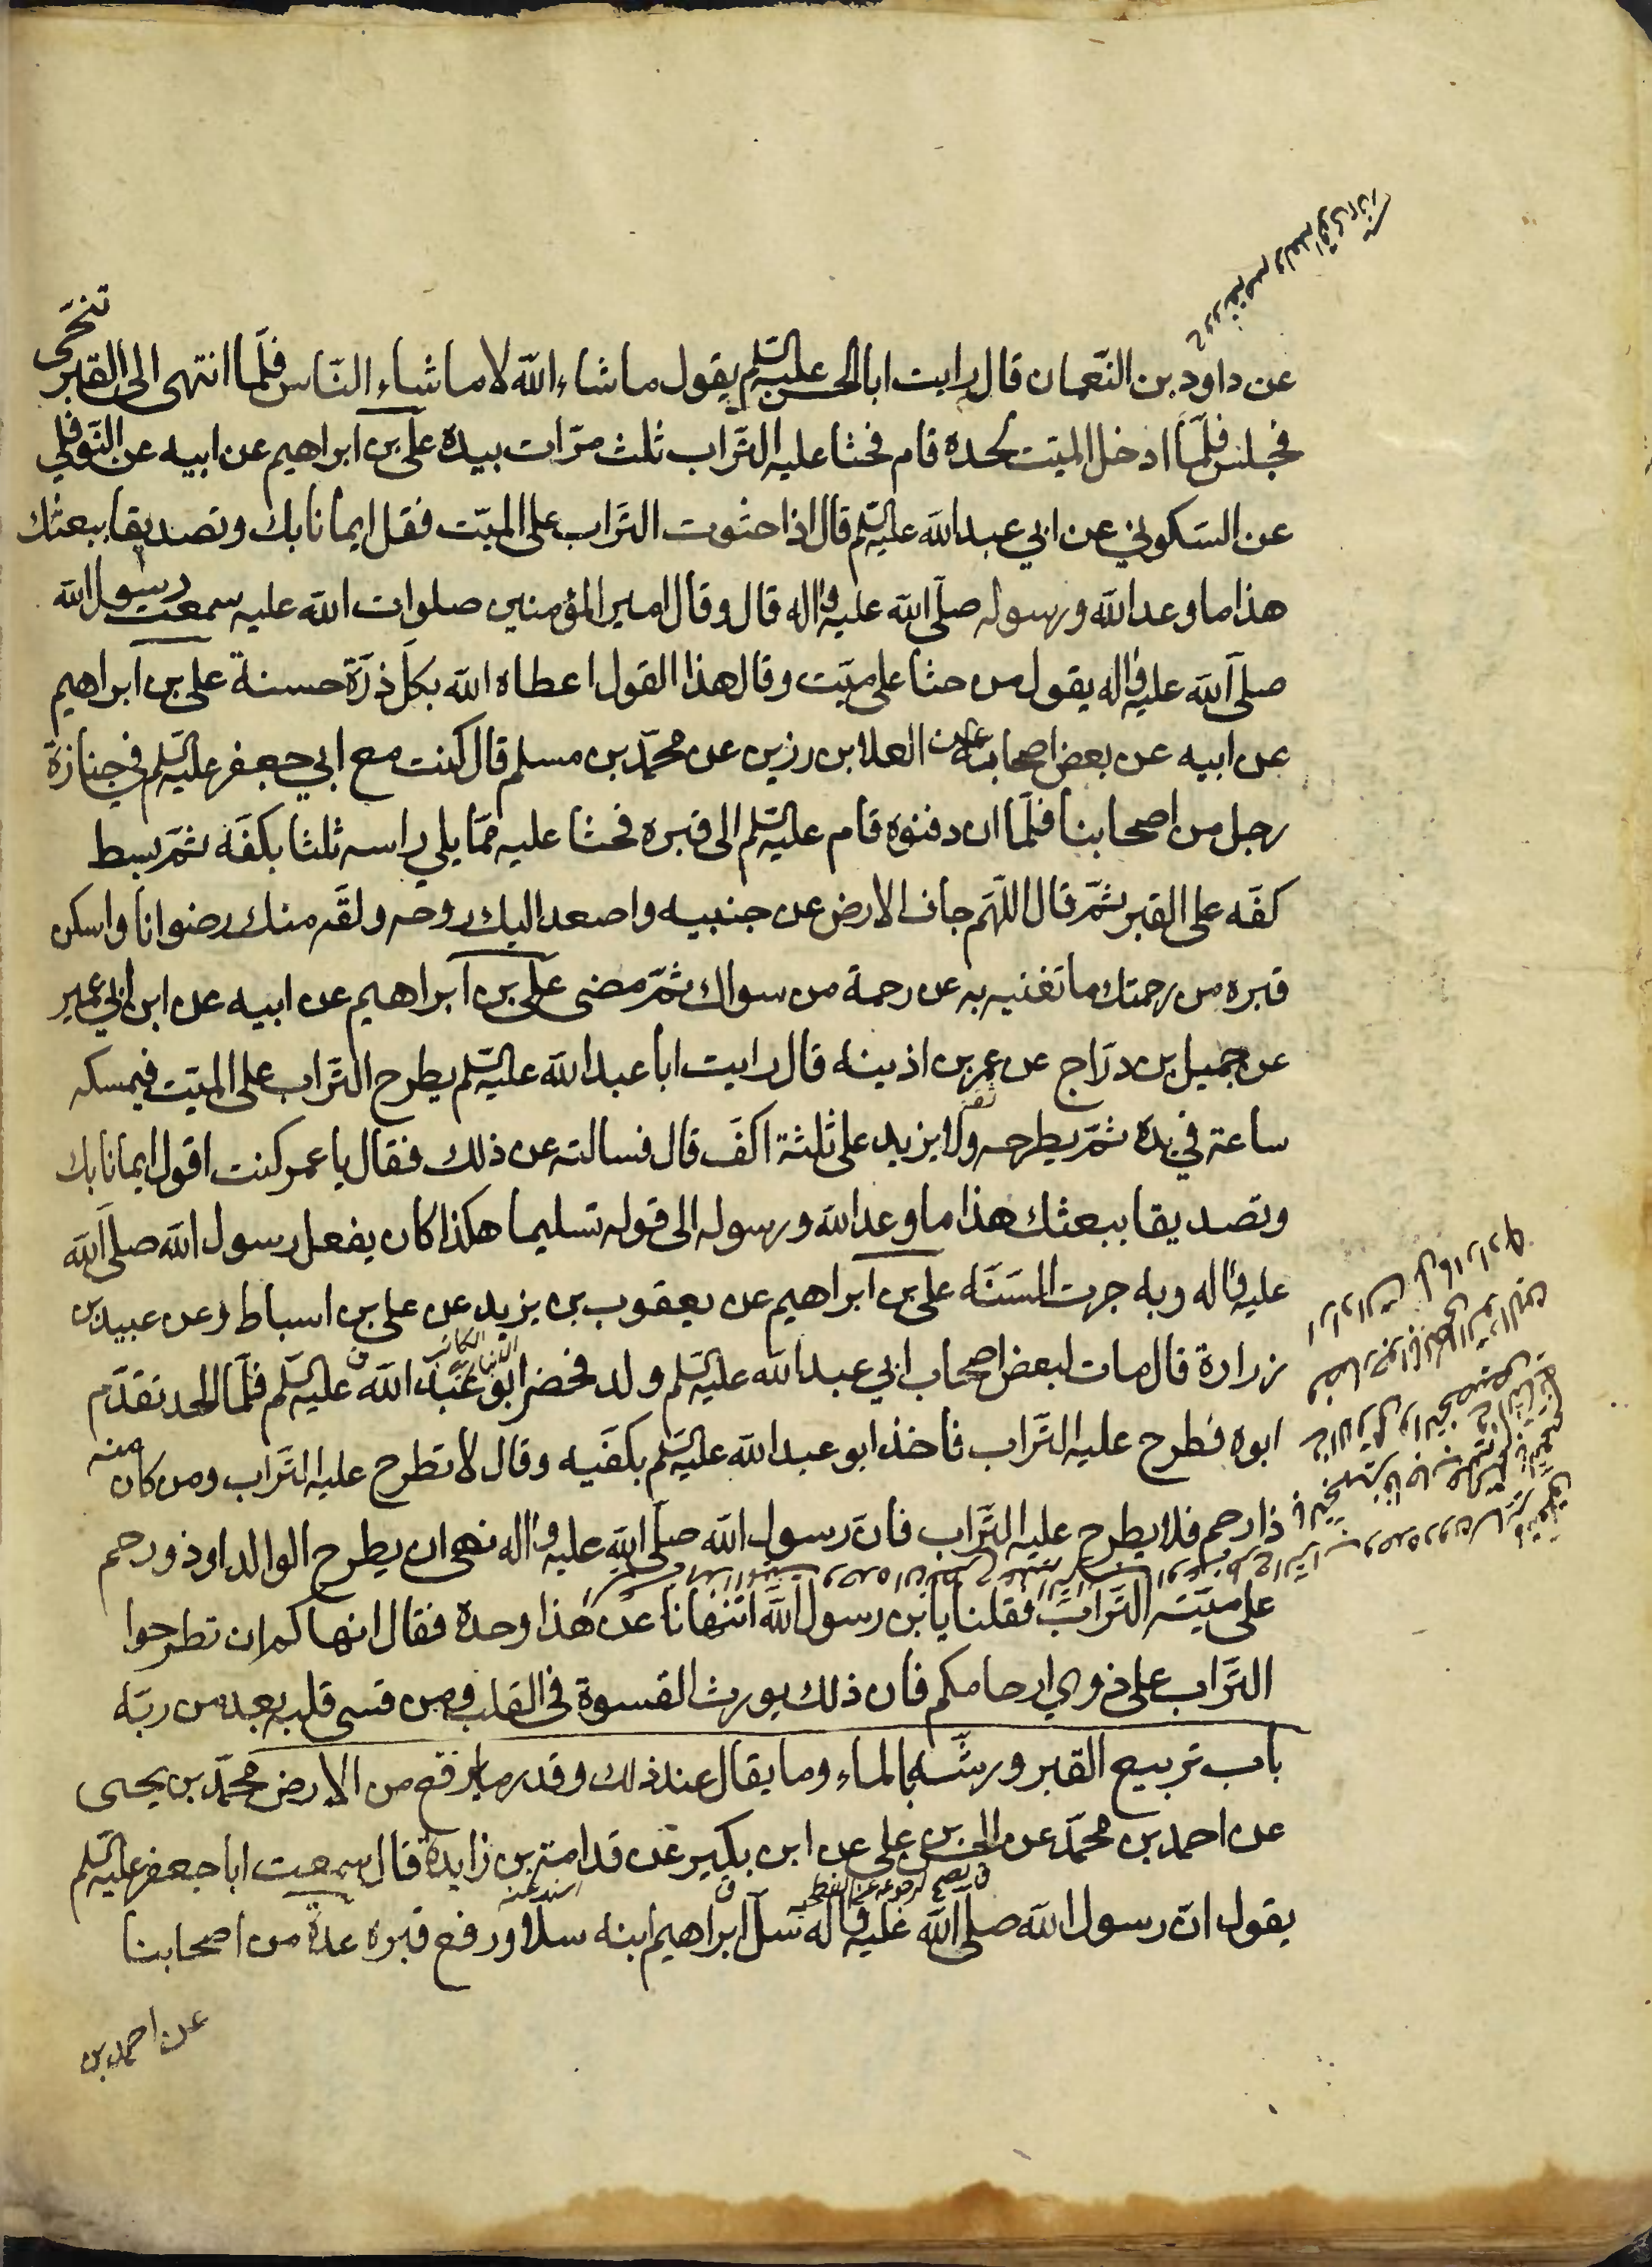 عن داود بن النعمان قال رايت ابا الحسن عليه السلم يقول ما شاء الله لا ما شاء الناس فلما انتهى الى القبر تنحى
فجلس فلما ادخل الميت لحده قام فحثا عليه التراب ثلث مرات بيده على بن ابراهيم عن ابيه عن النوفلي
عن السكوني عن ابي عبد الله عليه السلم قال اذا حثوت التراب على الميت فقل ايمانا بك وتصديقا ببعثك
هذا ما وعد الله ورسوله صلى الله عليه واله قال وقال امير المؤمنين صلوات الله عليه سمعت رسول الله
صلى الله عليه واله يقول من حثا على ميت وقال هذا القول اعطاه الله بكل ذرة حسنة على بن ابراهيم
عن ابيه عن بعض اصحابنا عن العلا بن رزين عن محمد بن مسلم قال كنت مع ابي جعفر عليه السلم في جنازة
رجل من اصحابنا فلما ان دفنوه قام عليه السلم الى قبره فحثا عليه مما يلي راسه ثلثا بكفه ثم بسط
كفه على القبر ثم قال اللهم جاف الارض عن جنبيه واصعد اليك روحه ولقه منك رضوانا واسكن
قبره من رحمتك ما تغنيه به عن رحمة من سواك ثم مضى على بن ابراهيم عن ابيه عن ابن ابي عمير
عن جميل بن دراج عن عمر بن اذينه قال رايت ابا عبد الله عليه السلم يطرح التراب على الميت فيمسكه
ساعة في يده ثم يطرحه ولا يزيد على ثلثة اكف قال فسالته عن ذلك فقال يا عمر كنت اقول ايمانا بك
وتصديقا ببعثك هذا ما وعد الله ورسوله الى قوله تسليما هكذا كان يفعل رسول الله صلى الله
عليه واله وبه جرت السنه على بن ابراهيم عن يعقوب بن يزيد عن على بن اسباط عن عبيد بن
زرارة قال مات لبعض اصحاب ابي عبد الله عليه السلم ولد فحضر ابو عبد الله عليه السلم فلما الحد تقدم
ابوه فطرح عليه التراب فاخذ ابو عبد الله عليه السلم بكفيه وقال لا تطرح عليه التراب ومن كان منه
ذا رحم فلا يطرح عليه التراب فان رسول الله صلى الله عليه واله نهى ان يطرح الوالد او ذو رحم
على ميته التراب فقلنا يا بن رسول الله اتنهانا عن هذا وحده فقال انهاكم ان تطرحوا
التراب على ذوي ارحامكم فان ذلك يورث القسوة في القلب ومن قسى قلبه بعد من ربه
باب تربيع القبر ورشه بالماء وما يقال عند ذلك وقدر ما يرفع من الارض محمد بن يحيى
عن احمد بن محمد عن الحسن بن علي عن ابن بكير عن قدامة بن زايدة قال سمعت ابا جعفر عليه السلم
يقول ان رسول الله صلى الله عليه واله سل ابراهيم ابنه سلا ورفع قبره عدة من اصحابنا
عن احمد بن